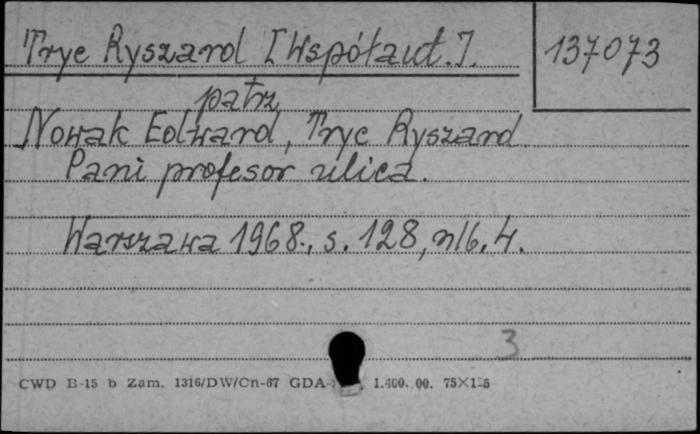 Tryc Ryszard [Współaut.].
137073
patrz
Nowak Edward, Tryc Ryszard
Pani profesor ulica.
Warszawa 1968., s. 128, nlb. 4.
3
CWD B-15 b Zam. 1316/DW/Cn-67 GDA- 1.400.00. 75×125